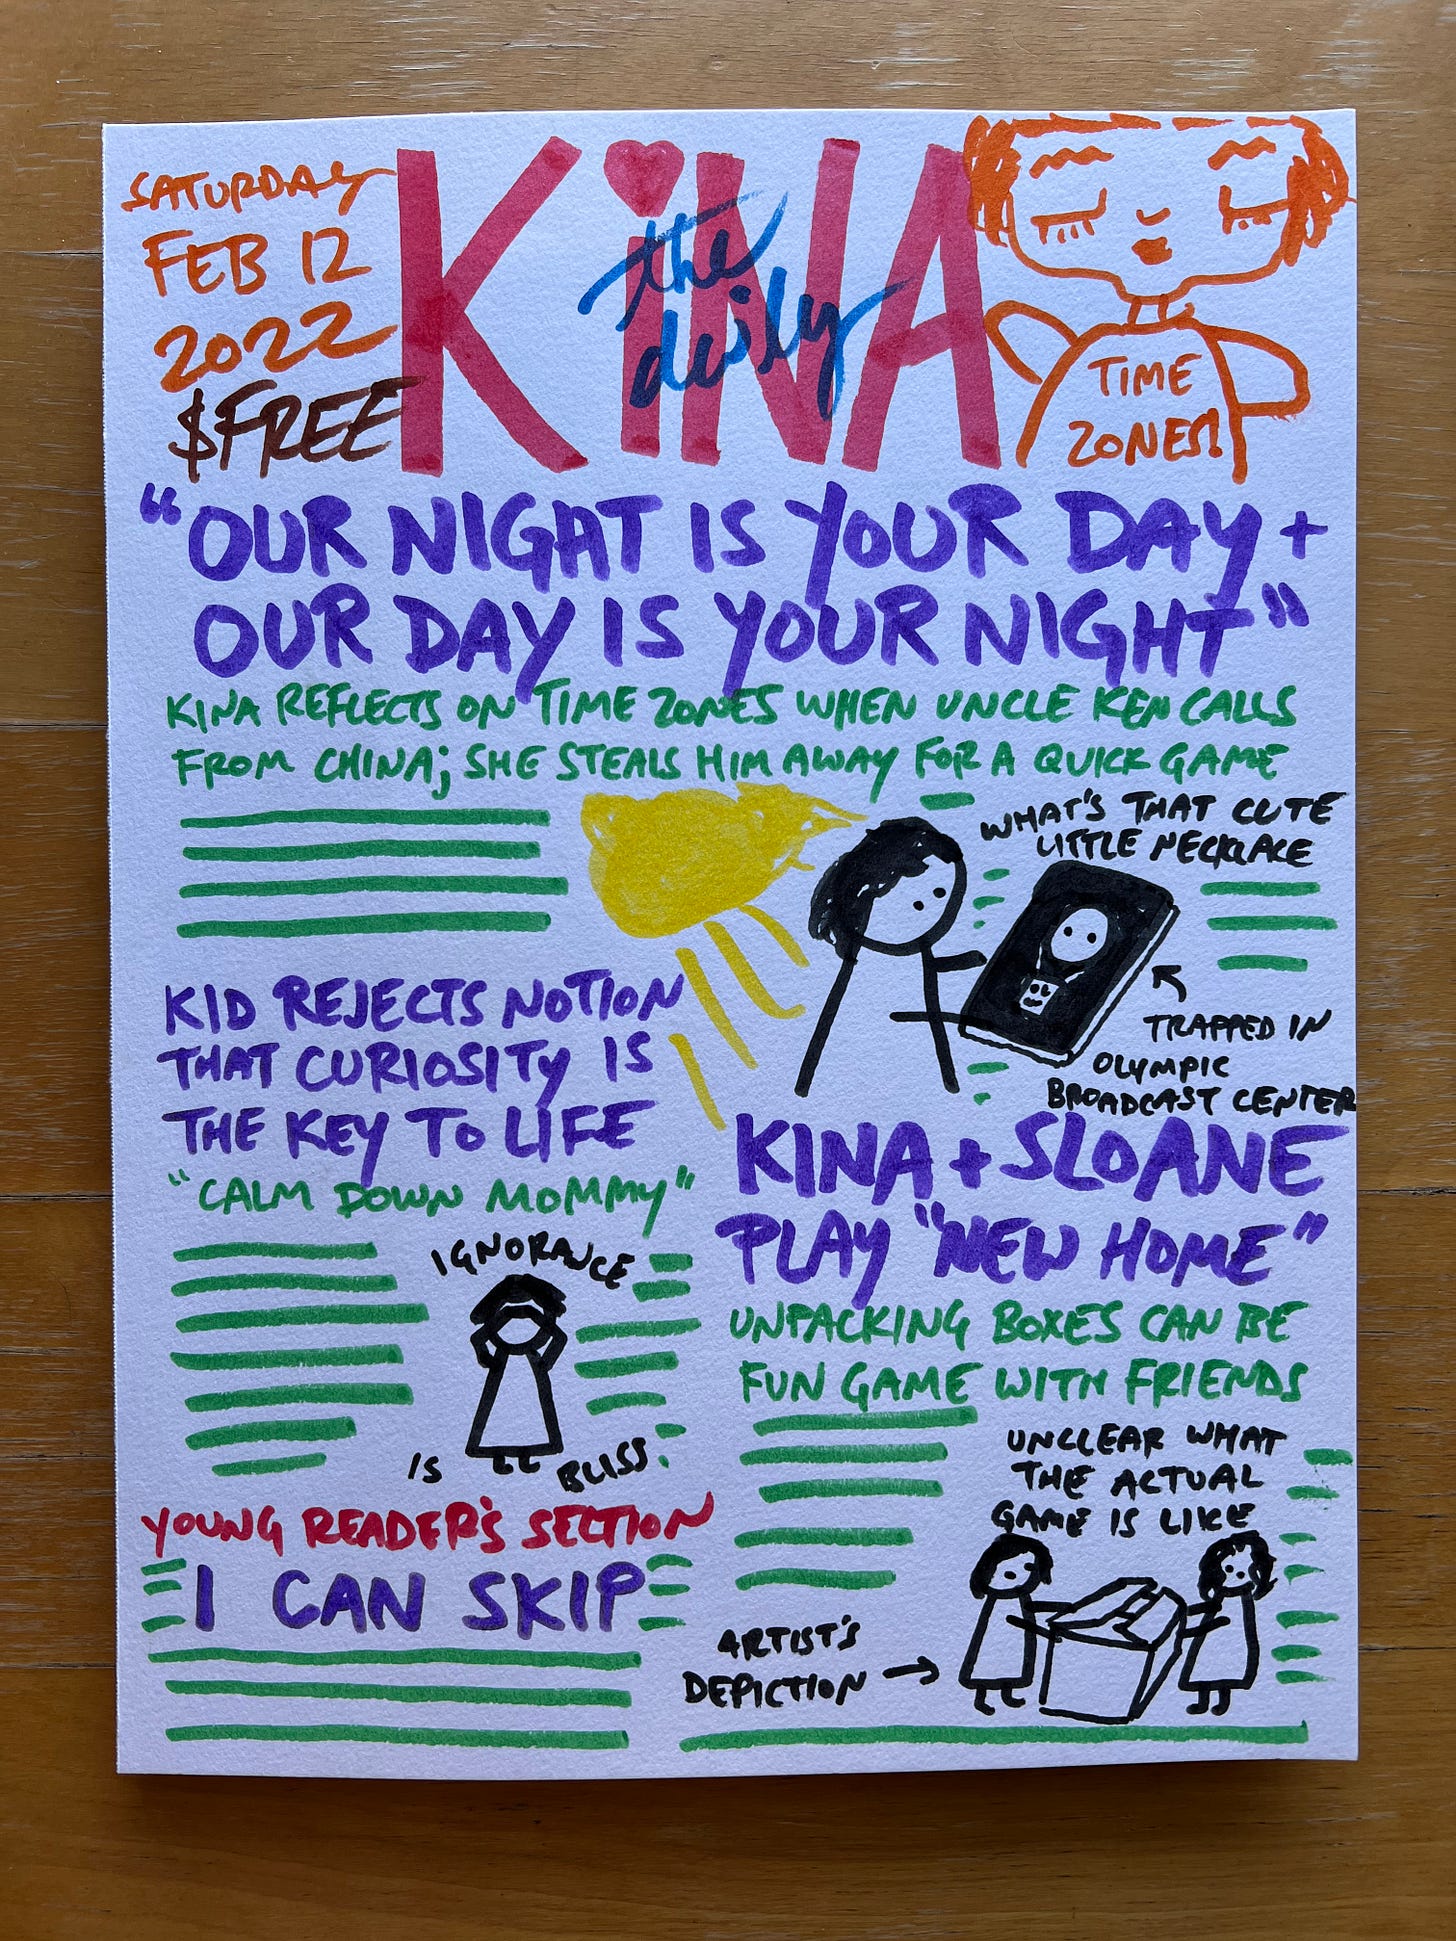 SATURDAY
FEB 12
2022
$FREE
the
daily
KiNA
TIME
ZONES!
"OUR NIGHT IS YOUR DAY +
OUR DAY IS YOUR NIGHT"
KINA REFLECTS ON TIME ZONES WHEN UNCLE KEN CALLS
FROM CHINA; SHE STEALS HIM AWAY FOR A QUICK GAME
WHAT'S THAT CUTE
LITTLE NECKLACE
TRAPPED IN
OLYMPIC
BROADCAST CENTER
KID REJECTS NOTION
THAT CURIOSITY IS
THE KEY TO LIFE
"CALM DOWN MOMMY"
IGNORANCE
IS BLISS.
KINA + SLOANE
PLAY "NEW HOME"
UNPACKING BOXES CAN BE
FUN GAME WITH FRIENDS
UNCLEAR WHAT
THE ACTUAL
GAME IS LIKE
ARTIST'S
DEPICTION
YOUNG READER'S SECTION
I CAN SKIP